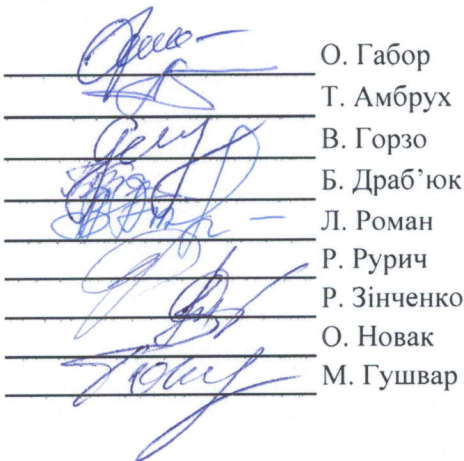 О. Габор
Т. Амбрух
В. Горзо
Б. Драб’юк
Л. Роман
Р. Рурич
Р. Зінченко
О. Новак
М. Гушвар